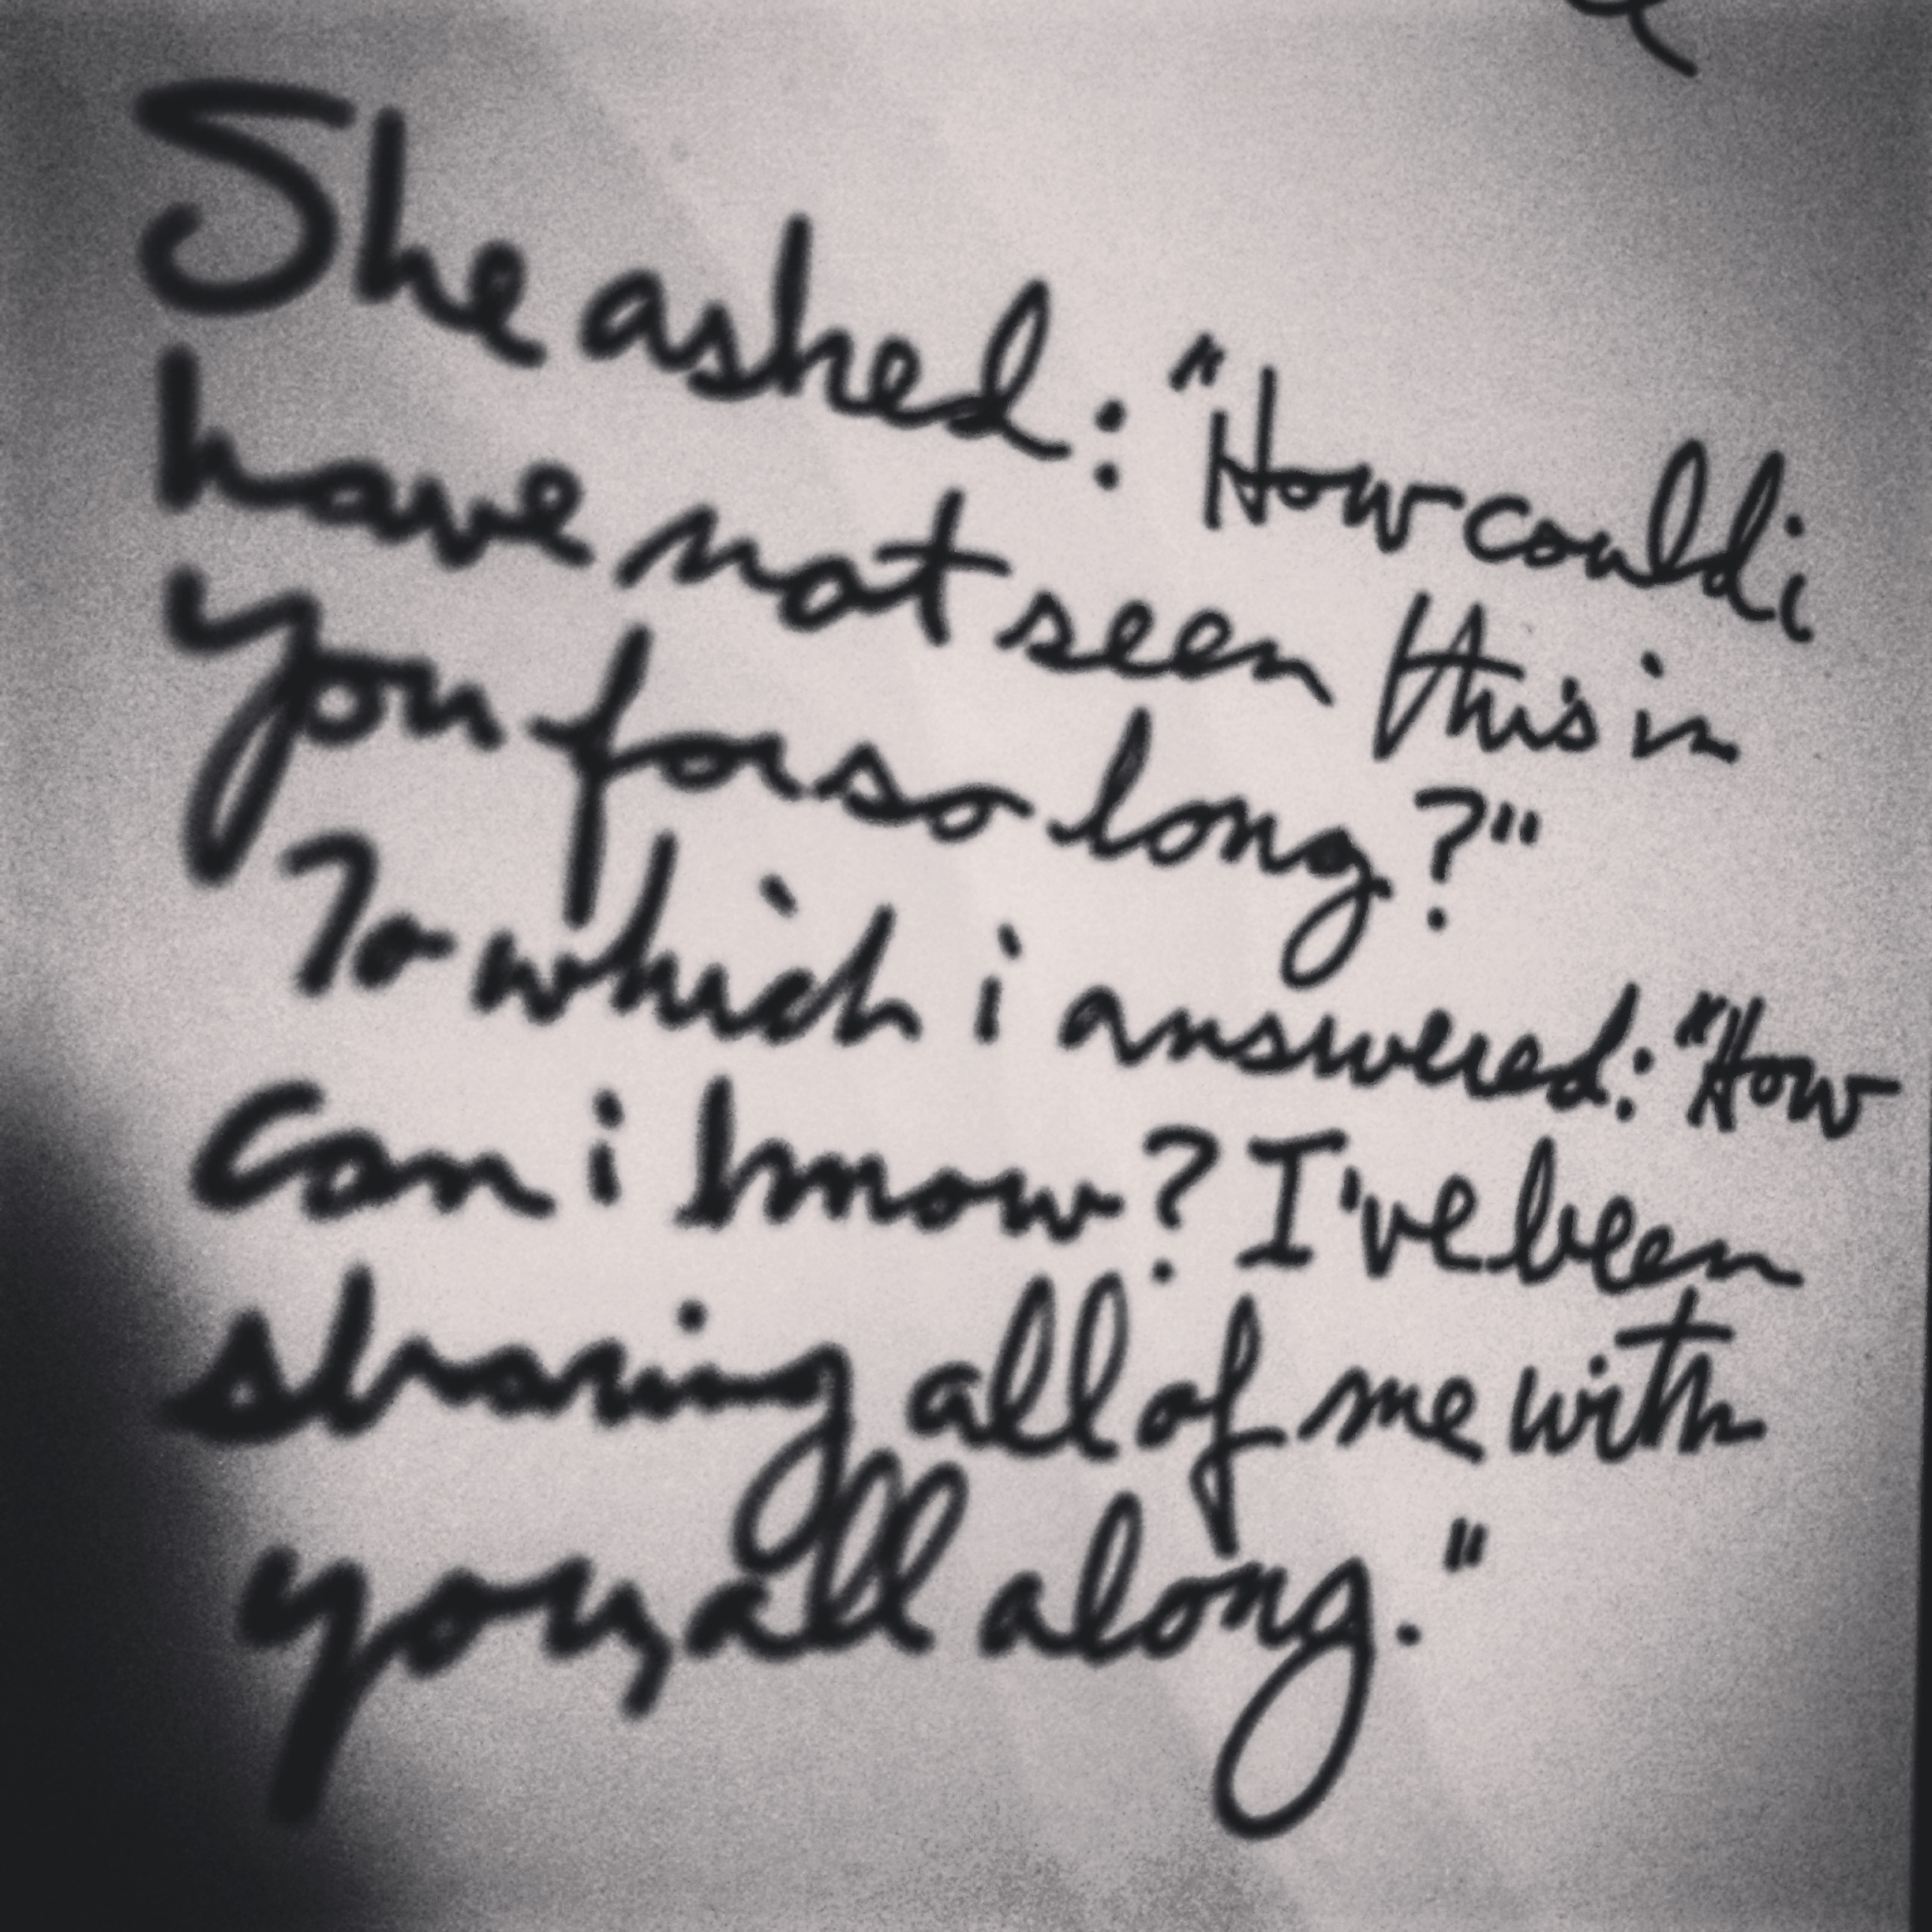 She asked: "How could i
have not seen this in
you for so long?"
To which i answered: "How
can i know? I've been
sharing all of me with
you, all along."